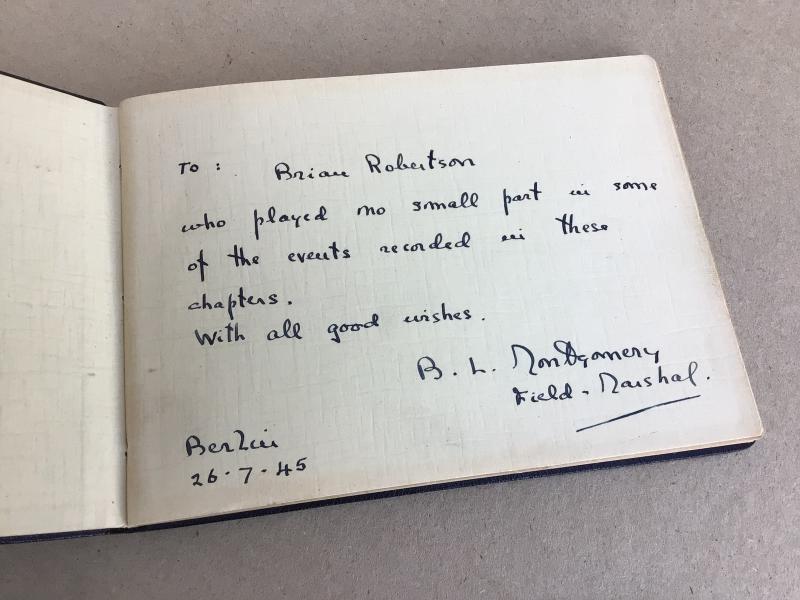 To : Brian Robertson
who played no small part in some
of the events recorded in these
chapters.
With all good wishes.
B. L. Montgomery
Field-Marshal.
Berlin
26·7·45